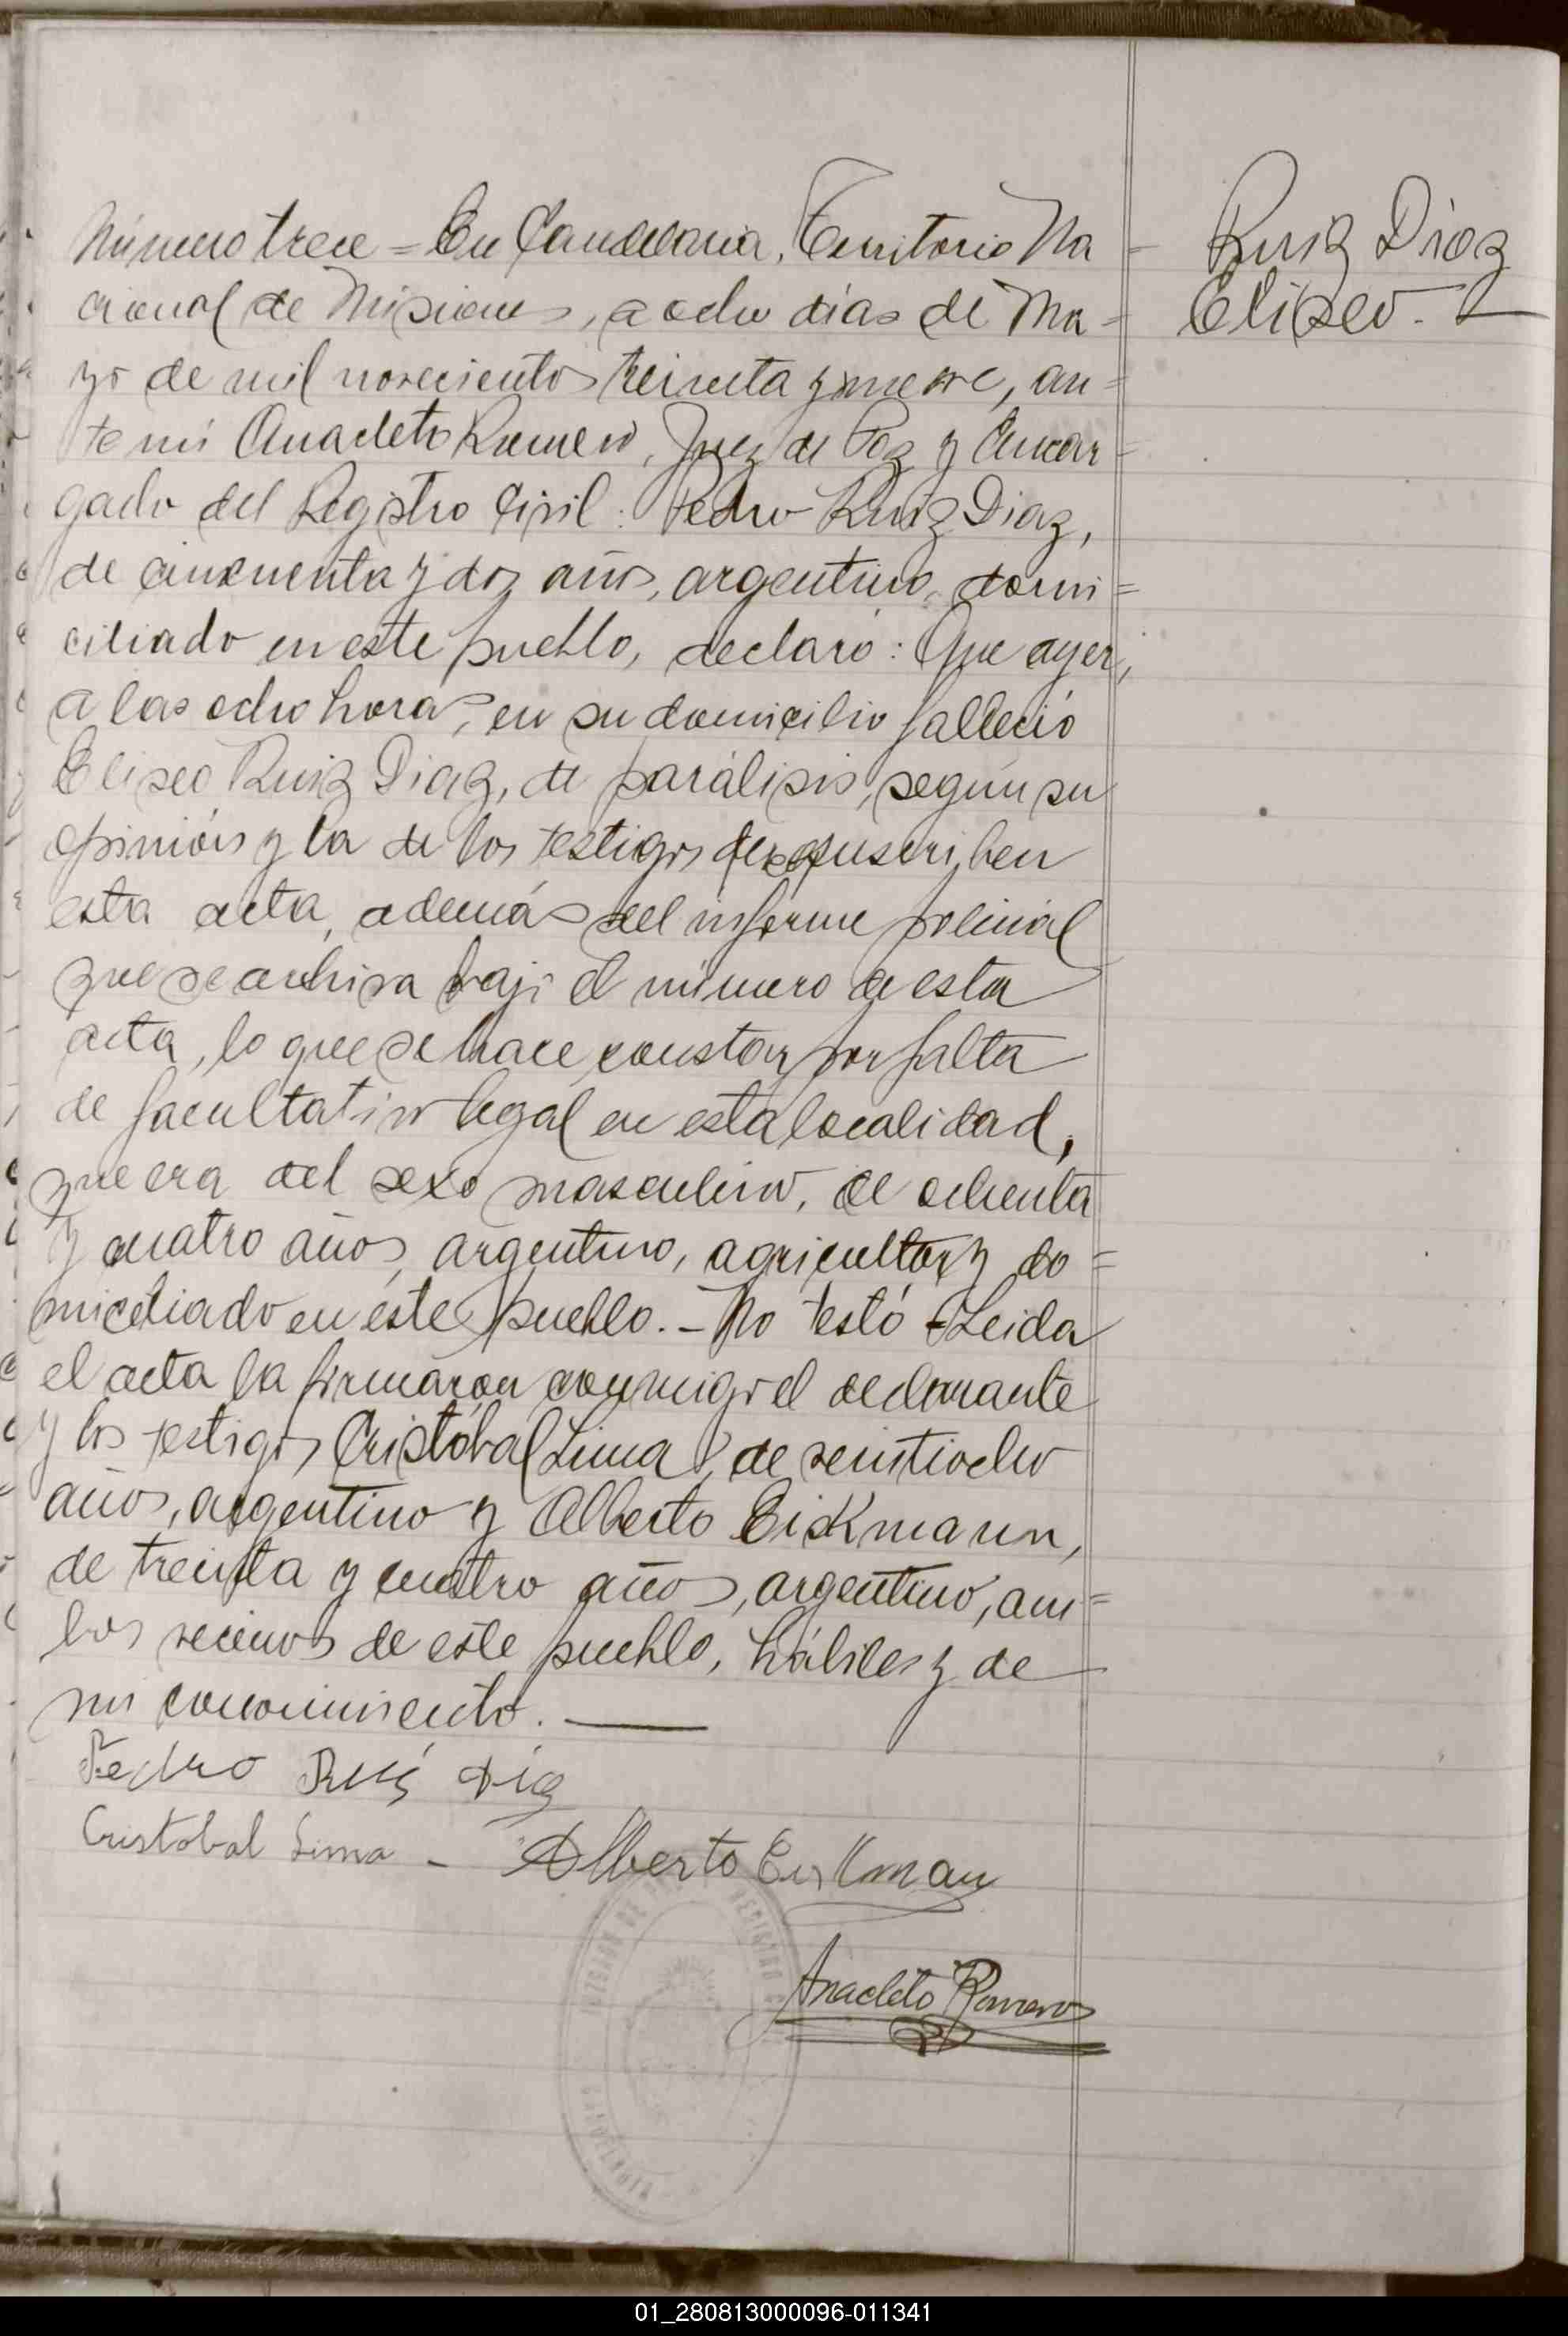 Número trece = En Candelaria, Territorio Na
cional de Misiones, a ocho días de Ma=
yo de mil novecientos treinta y nueve, an=
te mí Anacleto Romero, Juez de Paz y Encar=
gado del Registro Civil: Pedro Ruiz Diaz,
de cincuenta y dos años, argentino, domi=
ciliado en este pueblo, declaró: Que ayer,
a las ocho horas, en su domicilio falleció
Eliseo Ruiz Diaz, de parálisis, según su
opinión y la de los testigos que suscriben
esta acta, además del informe policial
que se archiva bajo el número de esta
acta, lo que se hace constar por falta
de facultativo legal en esta localidad,
que era del sexo masculino, de ochenta
y cuatro años, argentino, agricultor y do=
miciliado en este pueblo.- No testó - Leida
el acta la firmaron conmigo el declarante
y los testigos Cristóbal Lima, de veintiocho
años, argentino y Alberto Eickmann,
de treinta y cuatro años, argentino, am=
bos vecinos de este pueblo, hábiles y de
mi conocimiento.
Pedro Ruis Dia
Cristobal Lima - Alberto Eickman
Anacleto Romero
Ruiz Diaz
Eliseo.-
01_280813000096-011341